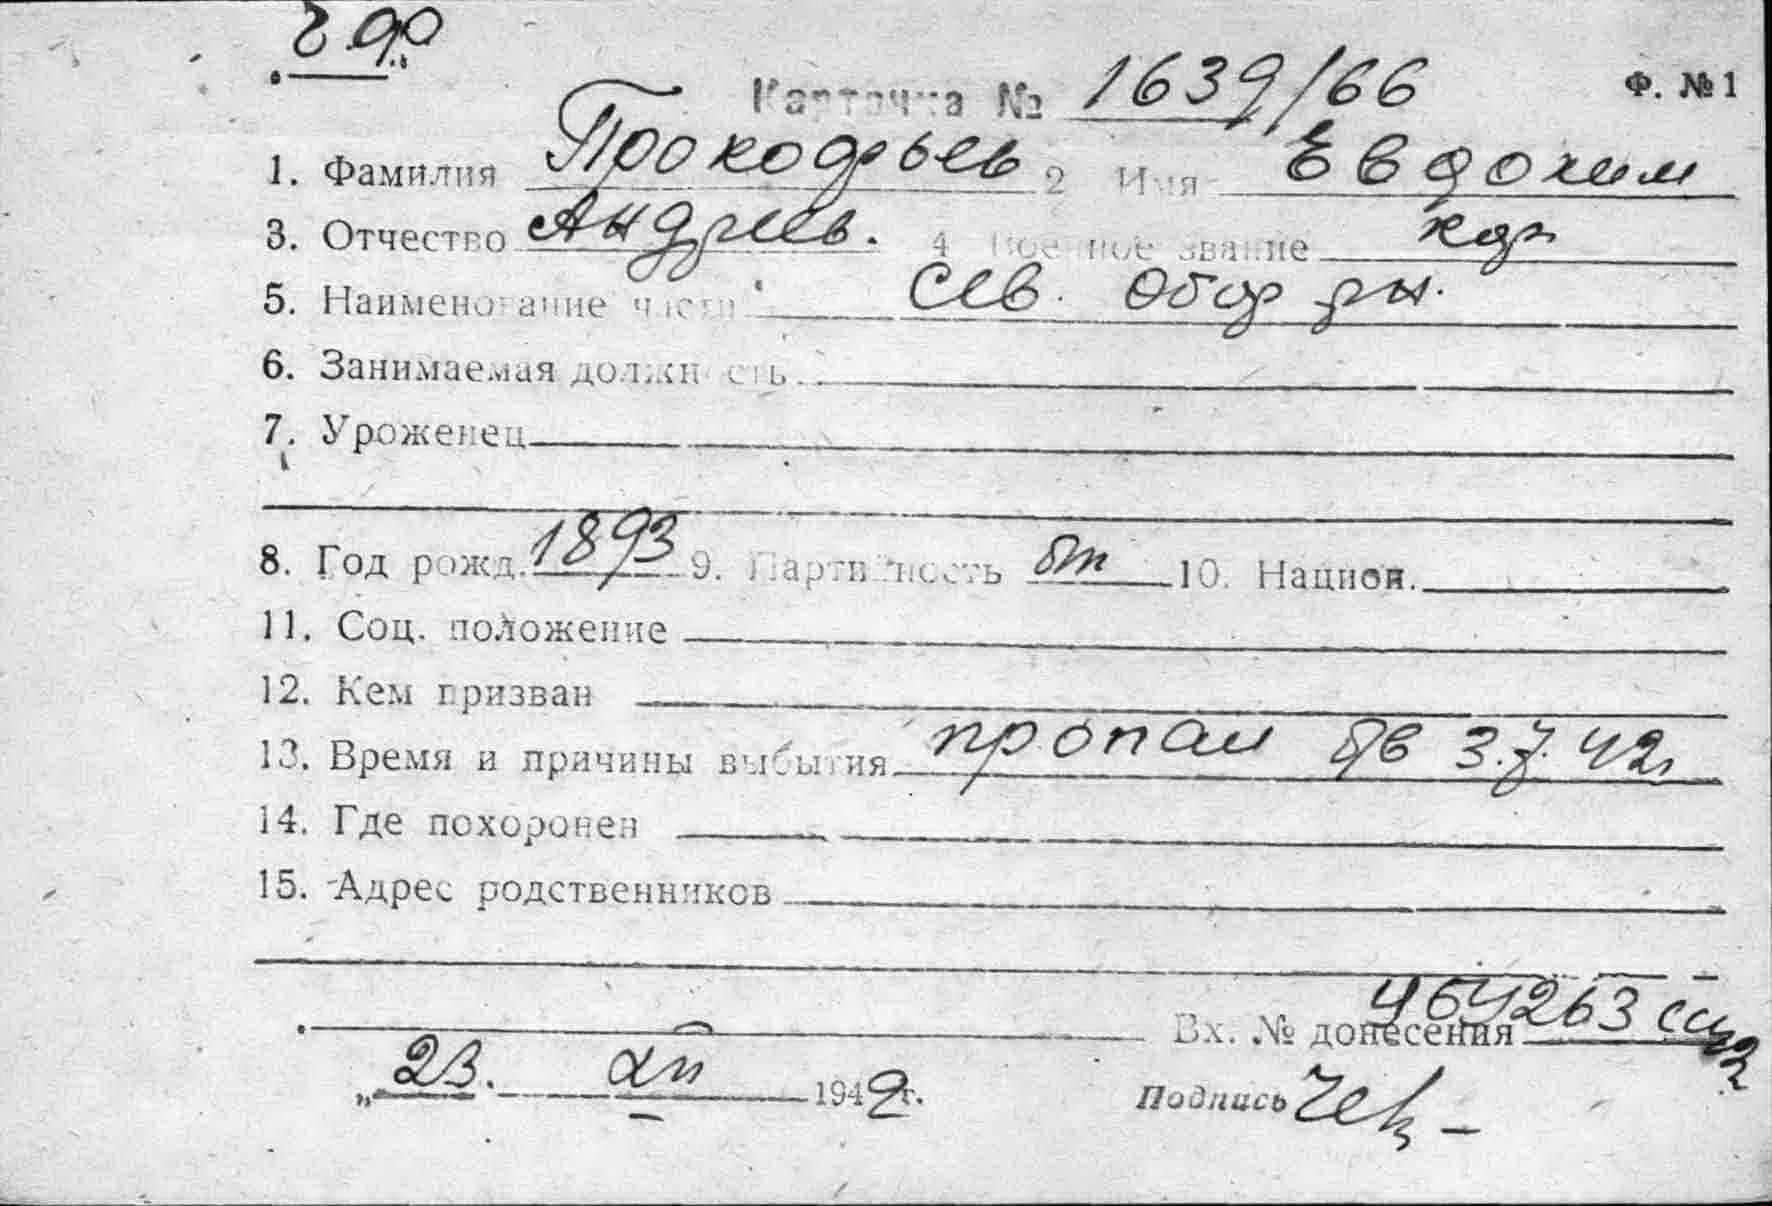 ЧФ
Карточка № 1639/66 Ф. №1
1. Фамилия Прокофьев 2 Имя Евдоким
3. Отчество Андреев. 4 Военное звание кдр
5. Наименование части Сев. Обор рн.
6. Занимаемая должность
7. Уроженец
8. Год рожд. 1893 9. Партийность бп 10. Национ.
11. Соц. положение
12. Кем призван
13. Время и причины выбытия пропал бв 3.7.42г
14. Где похоронен
15. Адрес родственников
Вх. № донесения
„23. 1949г. Подпись